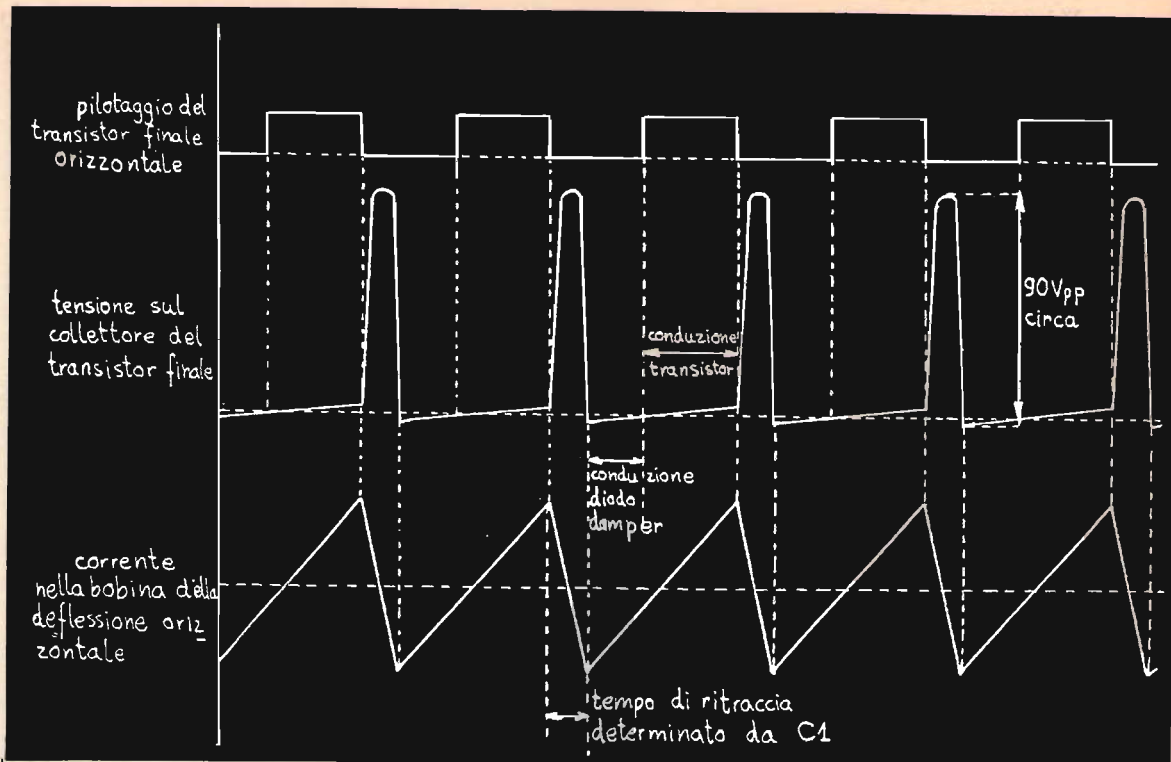 pilotaggio del
transistor finale
orizzontale
tensione sul
collettore del
transistor finale
90Vpp
circa
conduzione
transistor
conduzione
diodo
damper
corrente
nella bobina della
deflessione oriz
zontale
tempo di ritraccia
determinato da C1